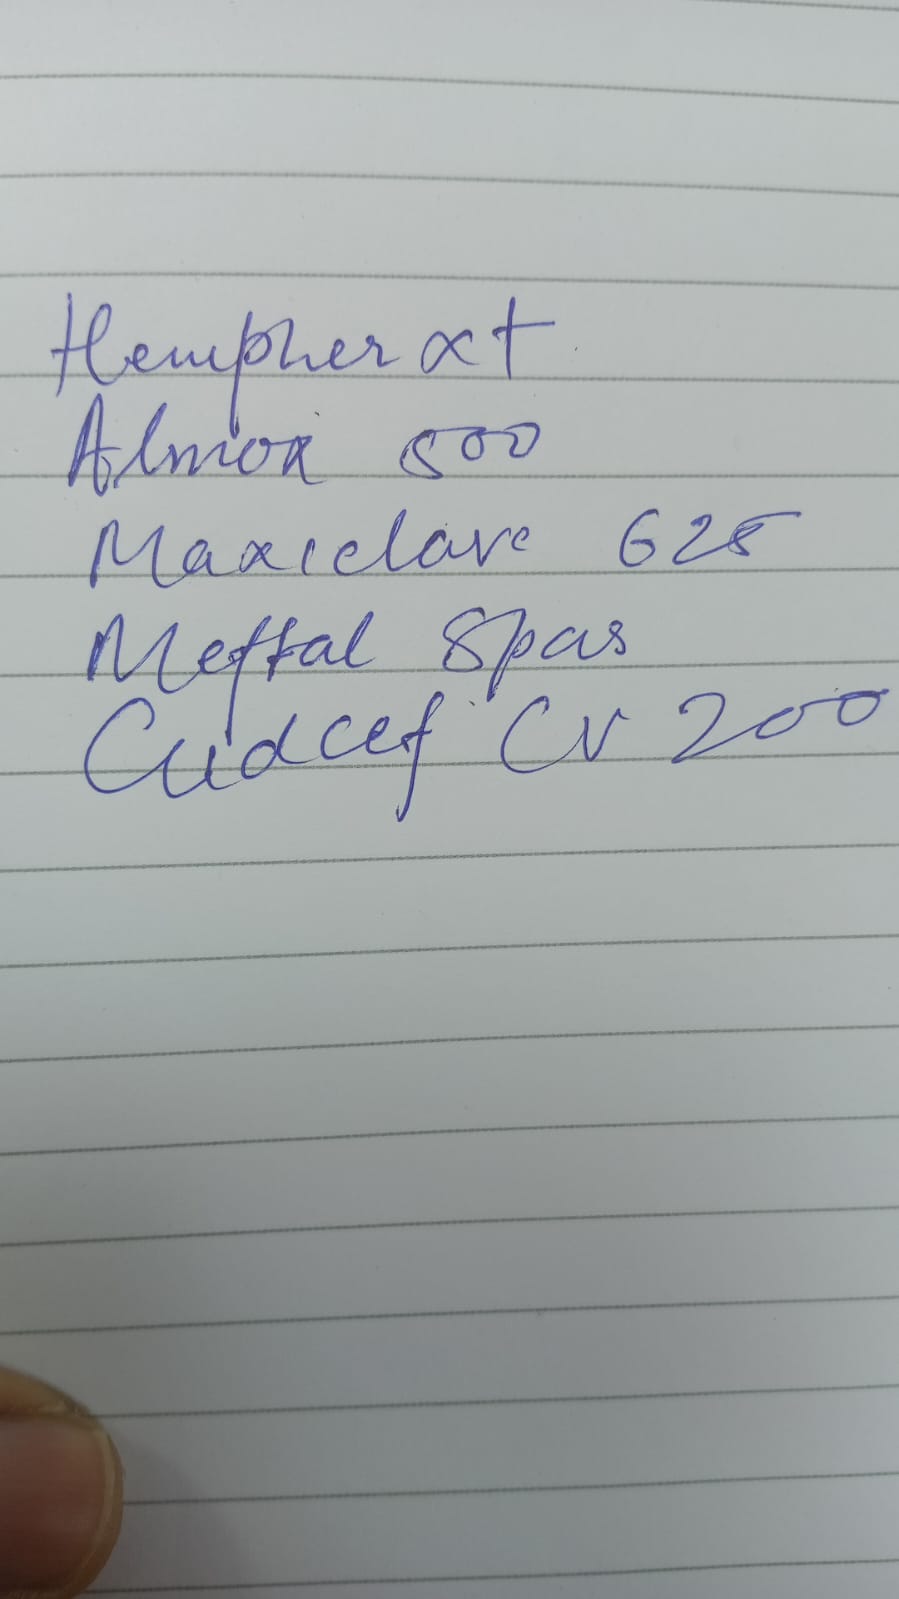 Hempher xt
Almox 500
Maxiclave 625
Meftal Spas
Cudcef CV 200